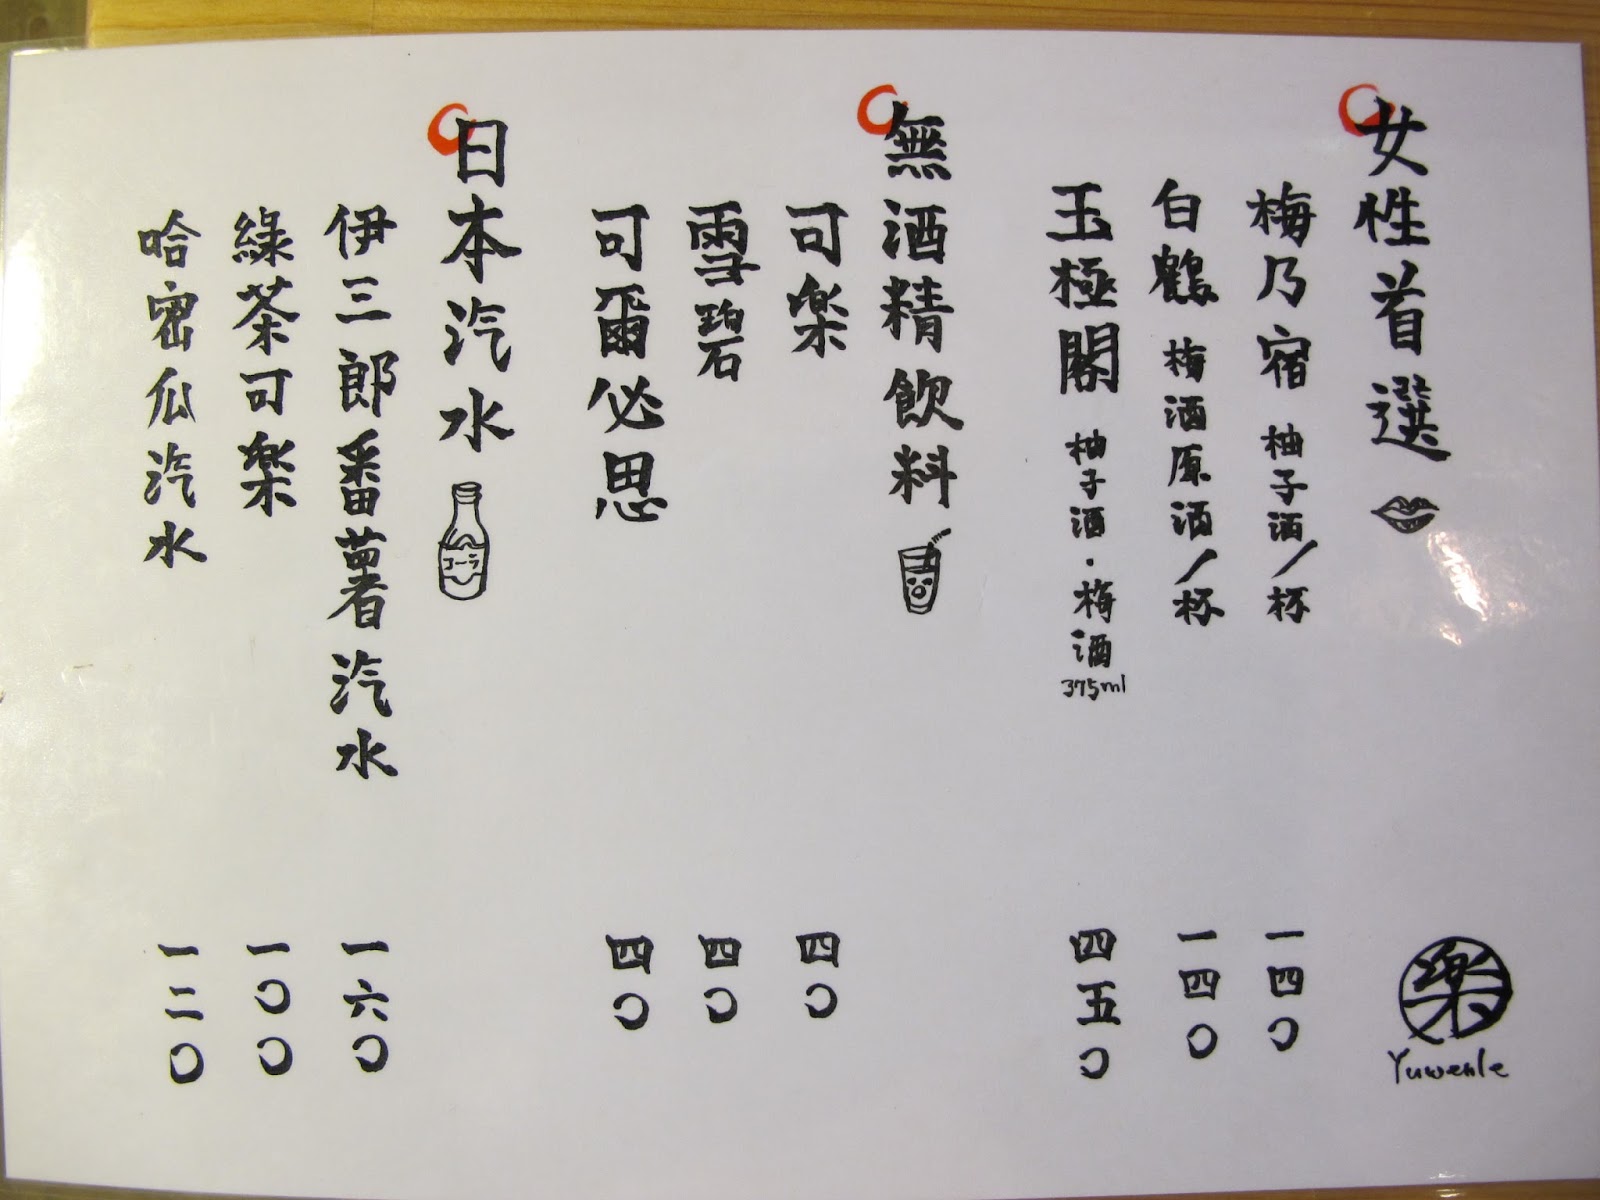 女性首選
梅乃宿 柚子酒/杯 一四〇
白鶴 梅酒原酒/杯 一四〇
玉極閣 柚子酒・梅酒 375ml 四五〇
無酒精飲料
可楽 四〇
雪碧 四〇
可爾必思 四〇
日本汽水
コーラ
伊三郎番薯汽水 一六〇
綠茶可樂 一〇〇
哈密瓜汽水 一二〇
楽
Yuwenle